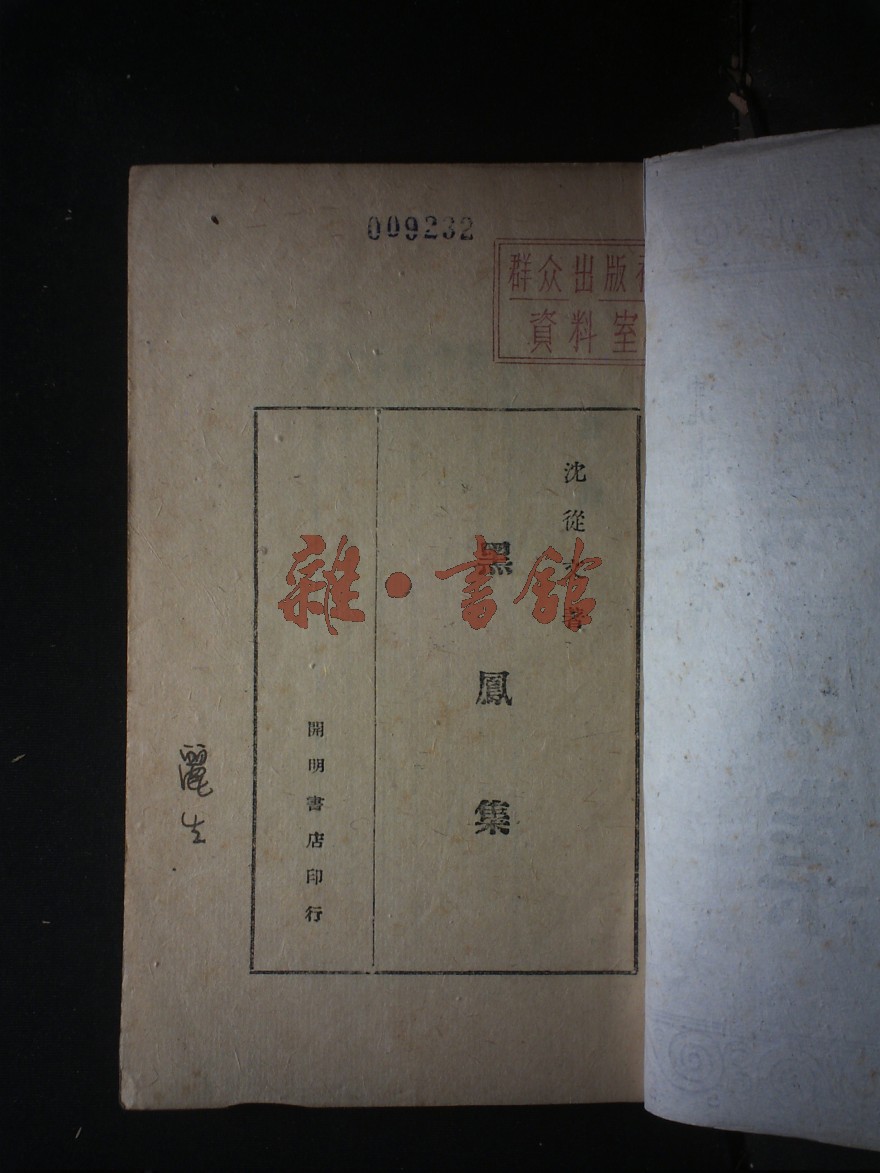 009232
群众出版社
資料室
沈從文著
黑鳳集
開明書店印行
雜·書館